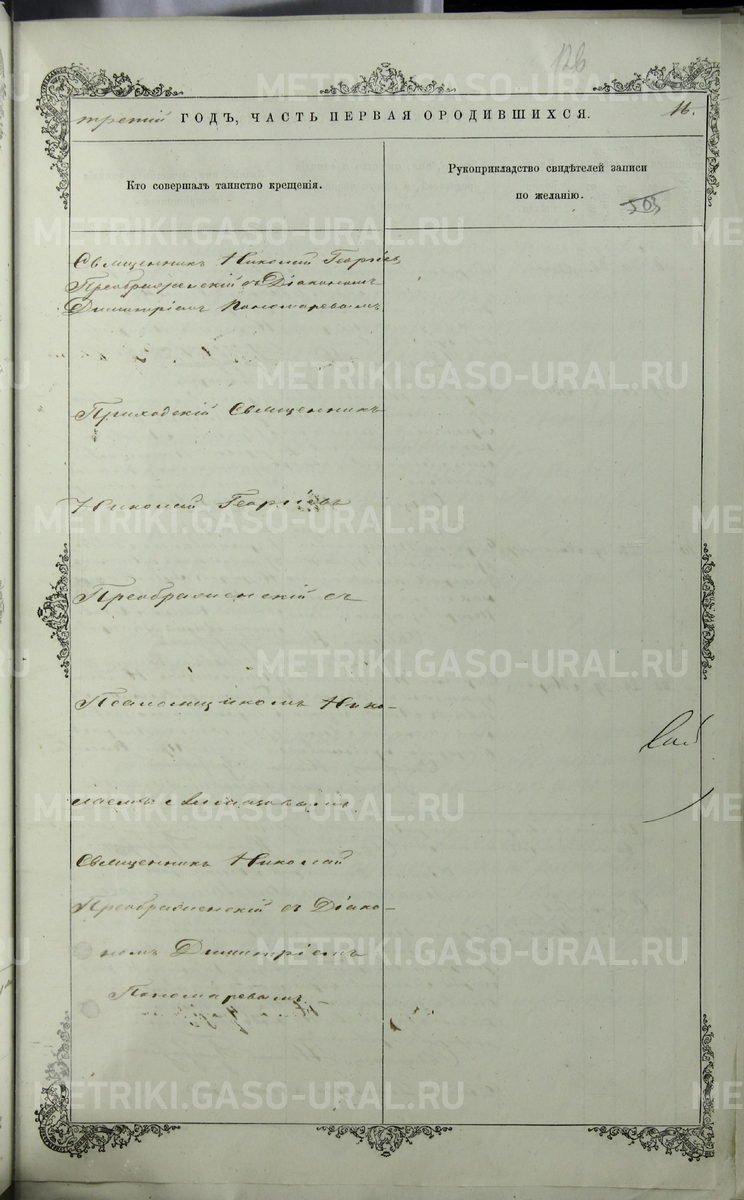 126
третій ГОДЪ, ЧАСТЬ ПЕРВАЯ О РОДИВШИХСЯ. 16.
Кто совершалъ таинство крещенія.
Рукоприкладство свидѣтелей записи
по желанію.
503
Священникъ Николай Георгіевъ
Преображенскій съ Діакономъ
Димитріемъ Пономаревымъ
Приходскій Священникъ
Николай Георгіевъ
Преображенскій съ
Псаломщикомъ Нико-
лаемъ
Священникъ Николай
Преображенскій съ Діако-
номъ Димитріемъ
Пономаревымъ
METRIKI.GASO-URAL.RU